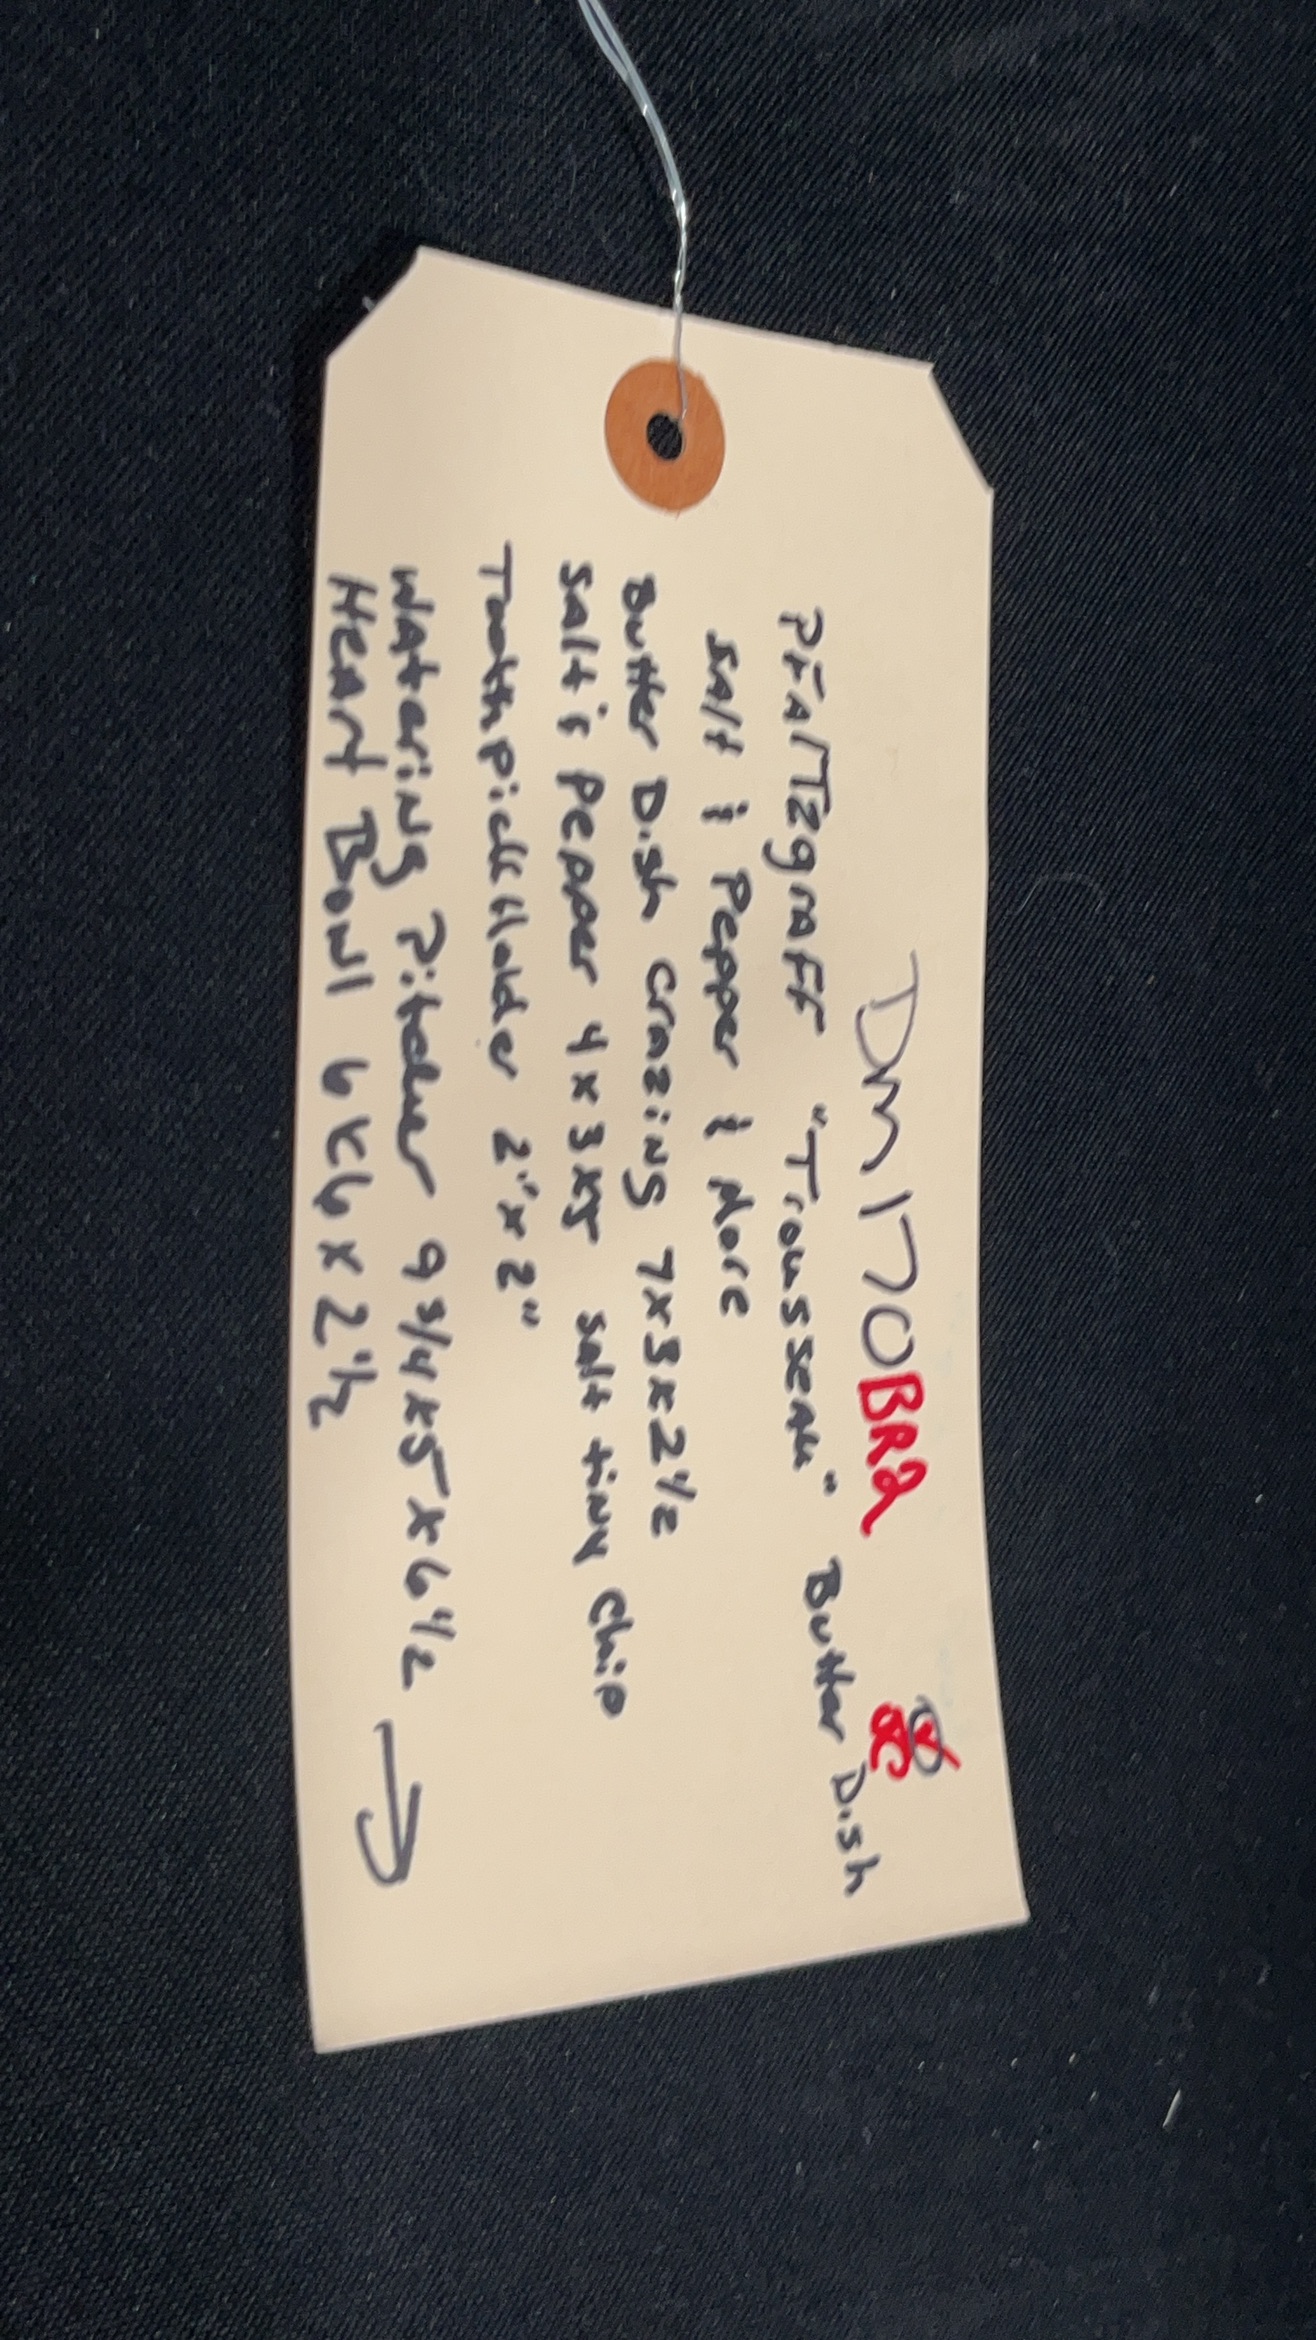 DM170BR2
PFALTZgraFF "Trousseau" Butter Dish
Salt & Pepper & More
Butter Dish Crazing 7x3x2 1/2
Salt & Pepper 4x3x5 Salt tiny Chip
Toothpick Holder 2"x2"
Watering Pitcher 9 3/4x5x6 1/2
Heart Bowl 6x6x2 1/2